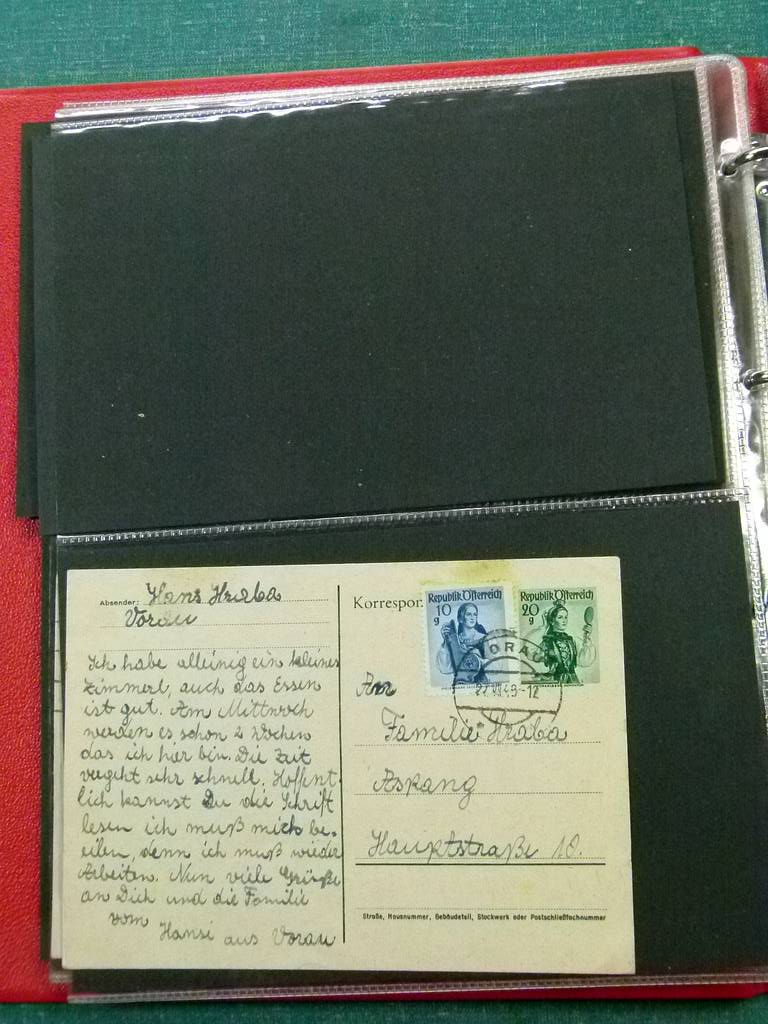 Absender: Hans Hraba
Vorau
Ich habe alleinig ein kleines
Zimmerl, auch das Essen
ist gut. Am Mittwoch
werden es schon 2 Wochen
das ich hier bin. Die Zeit
vergeht sehr schnell. Hoffent-
lich kannst Du die Schrift
lesen ich muß mich be-
eilen, denn ich muß wieder
Arbeiten. Nun viele Grüße
an Dich und die Familie
vom
Hansi aus Vorau
Korrespon
Republik Österreich
10
g
Republik Österreich
20
g
VORAU
27.VII.49-12
An
Familie Hraba
Aspang
Hauptstraße 10.
Straße, Hausnummer, Gebäudeteil, Stockwerk oder Postschließfachnummer